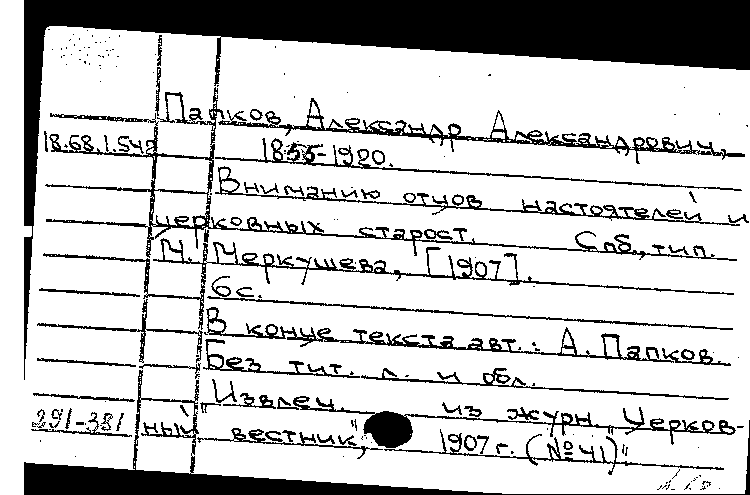 Папков, Александр Александрович,
18.68.1.542 1855-1920.
Вниманию отцов настоятелей и
церковных старост. Спб., тип.
М. Меркушева, [1907].
6с.
В конце текста авт.: А. Папков.
Без тит. л. и обл.
"Извлеч. из журн. "Церков-
291-381 ный вестник", 1907 г. (№41)".